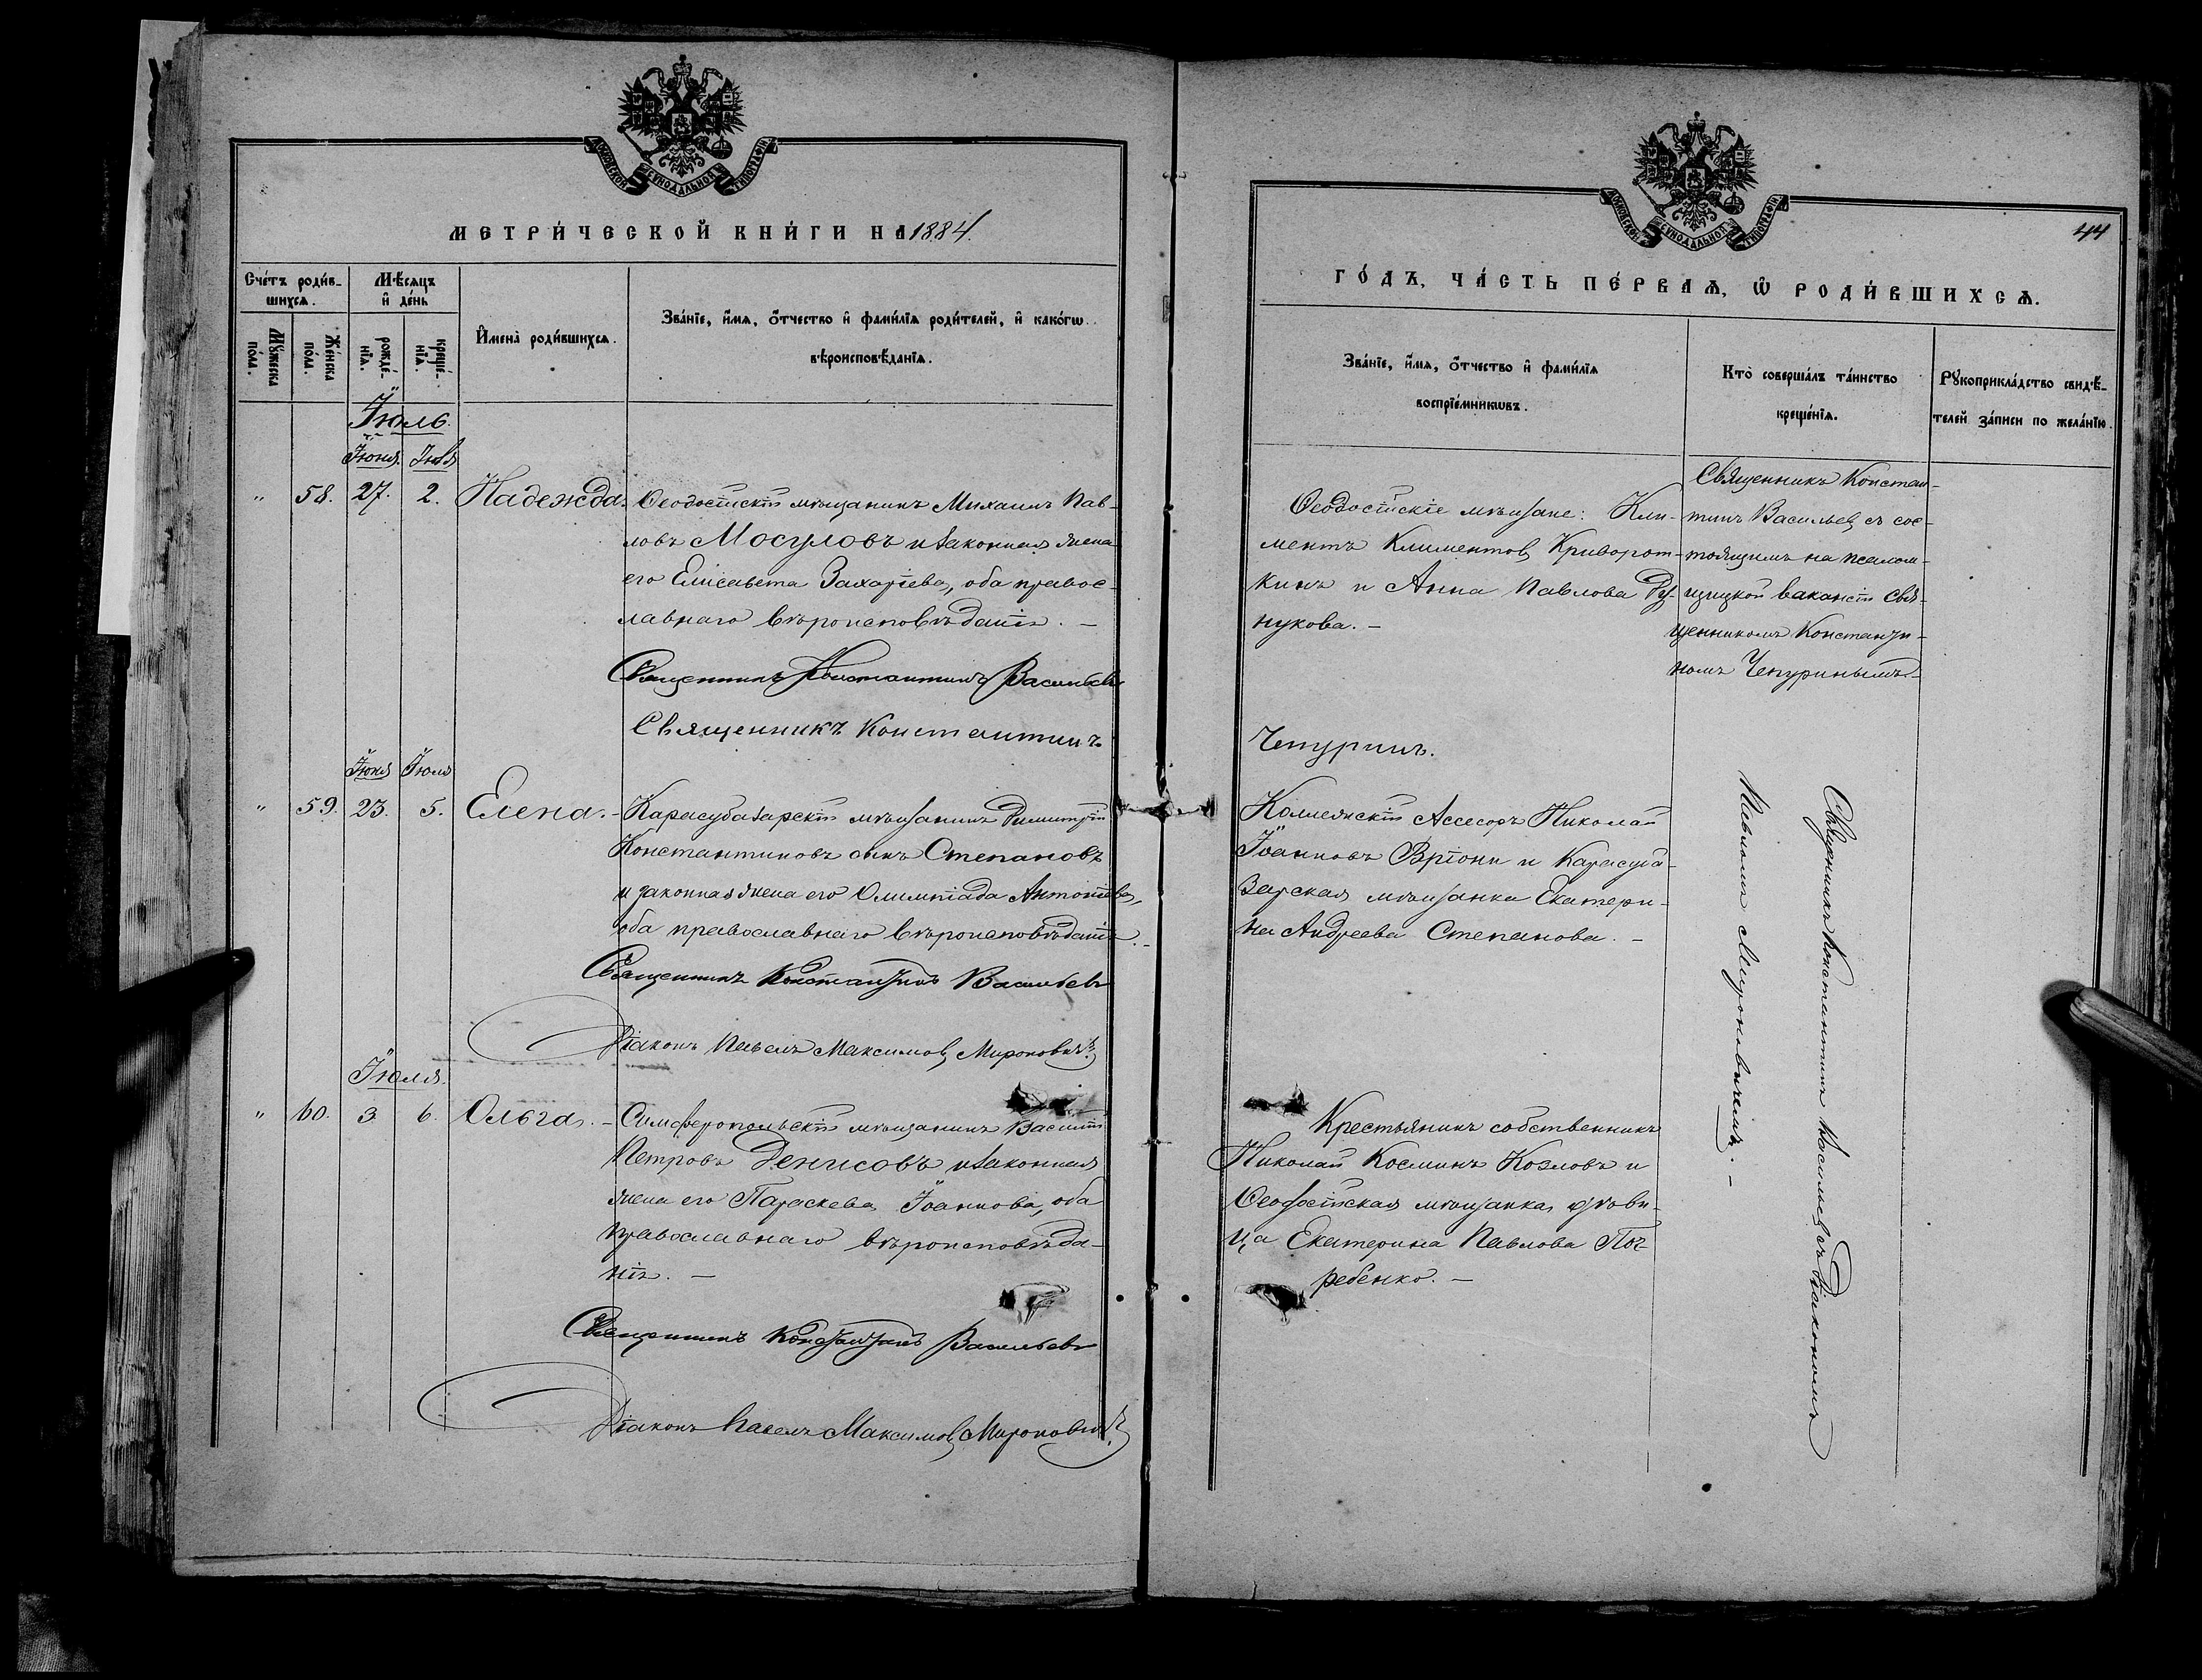 МОСКОВСКОЙ СѴНОДАЛЬНОЙ ТИПОГРАФІИ
МЕТРИ́ЧЕСКОЙ КНИ́ГИ НА 1884.
Сче́тъ роди́в-
шихсѧ.
Мѣ́сѧцъ
и҆ де́нь
Мꙋ́жеска
по́ла.
Же́нска
по́ла.
рожде́-
нїѧ.
креще́-
нїѧ.
И҆мена̀ роди́вшихсѧ.
Зва́нїе, и҆́мѧ, ѻ҆́тчество и҆ фами́лїѧ роди́телей, и҆ како́гѡ
вѣроисповѣ́данїѧ.
Іюль.
Іюня. Іюля
" 58. 27. 2. Надежда.
Ѳеодосійскій мѣщанинъ Михаилъ Пав-
ловъ Мосуловъ и законная жена
его Елисавета Захаріева, оба правос-
лавнаго вѣроисповѣданія. —
Священникъ Константинъ Васильевъ
Священникъ Константинъ
Іюня Іюля
" 59. 23. 5. Елена. -
Карасубазарскій мѣщанинъ Димитрій
Константиновъ сынъ Степановъ
и законная жена его Олимпіада Антоніева,
оба православнаго вѣроисповѣданія. -
Священникъ Константинъ Васильевъ
Діаконъ Павелъ Максимовъ Мироновичъ
Іюля.
" 60. 3. 6. Ольга. -
Симферопольскій мѣщанинъ Василій
Петровъ Денисовъ и законная
жена его Параскева Іоаннова, оба
православнаго вѣроисповѣда-
нія. —
Священникъ Константинъ Васильевъ
Діаконъ Павелъ Максимовъ Мироновичъ
МОСКОВСКОЙ СѴНОДАЛЬНОЙ ТИПОГРАФІИ
44
ГО́ДЪ, ЧА́СТЬ ПЕ́РВАѦ, Ѡ҆ РОДИ́ВШИХСѦ.
Зва́нїе, и҆́мѧ, ѻ҆́тчество и҆ фами́лїѧ
воспрїе́мникѡвъ.
Кто̀ соверша́лъ та́инство
креще́нїѧ.
Рꙋкоприкла́дство свидѣ́-
телей за́писи по жела́нїю.
Ѳеодосійскіе мѣщане: Кли-
ментъ Климентовъ Криворот-
кинъ и Анна Павлова Ду-
нукова. -
Священникъ Констан-
тинъ Васильевъ съ сос-
тоящимъ на псалом-
щицкой вакансіи свя-
щенникомъ Константи-
номъ Чепуринымъ.
Чепуринъ.
Коллежскій Ассесоръ Николай
Іоанновъ Вріони и Карасуба-
зарская мѣщанка Екатери-
на Андреева Степанова. -
Крестьянинъ собственникъ
Николай Косминъ Козловъ и
Ѳеодосійская мѣщанка дѣви-
ца Екатерина Павлова Пог-
ребенко. —
Священникъ Константинъ Васильевъ съ Діакономъ
Павломъ Мироновичемъ. -